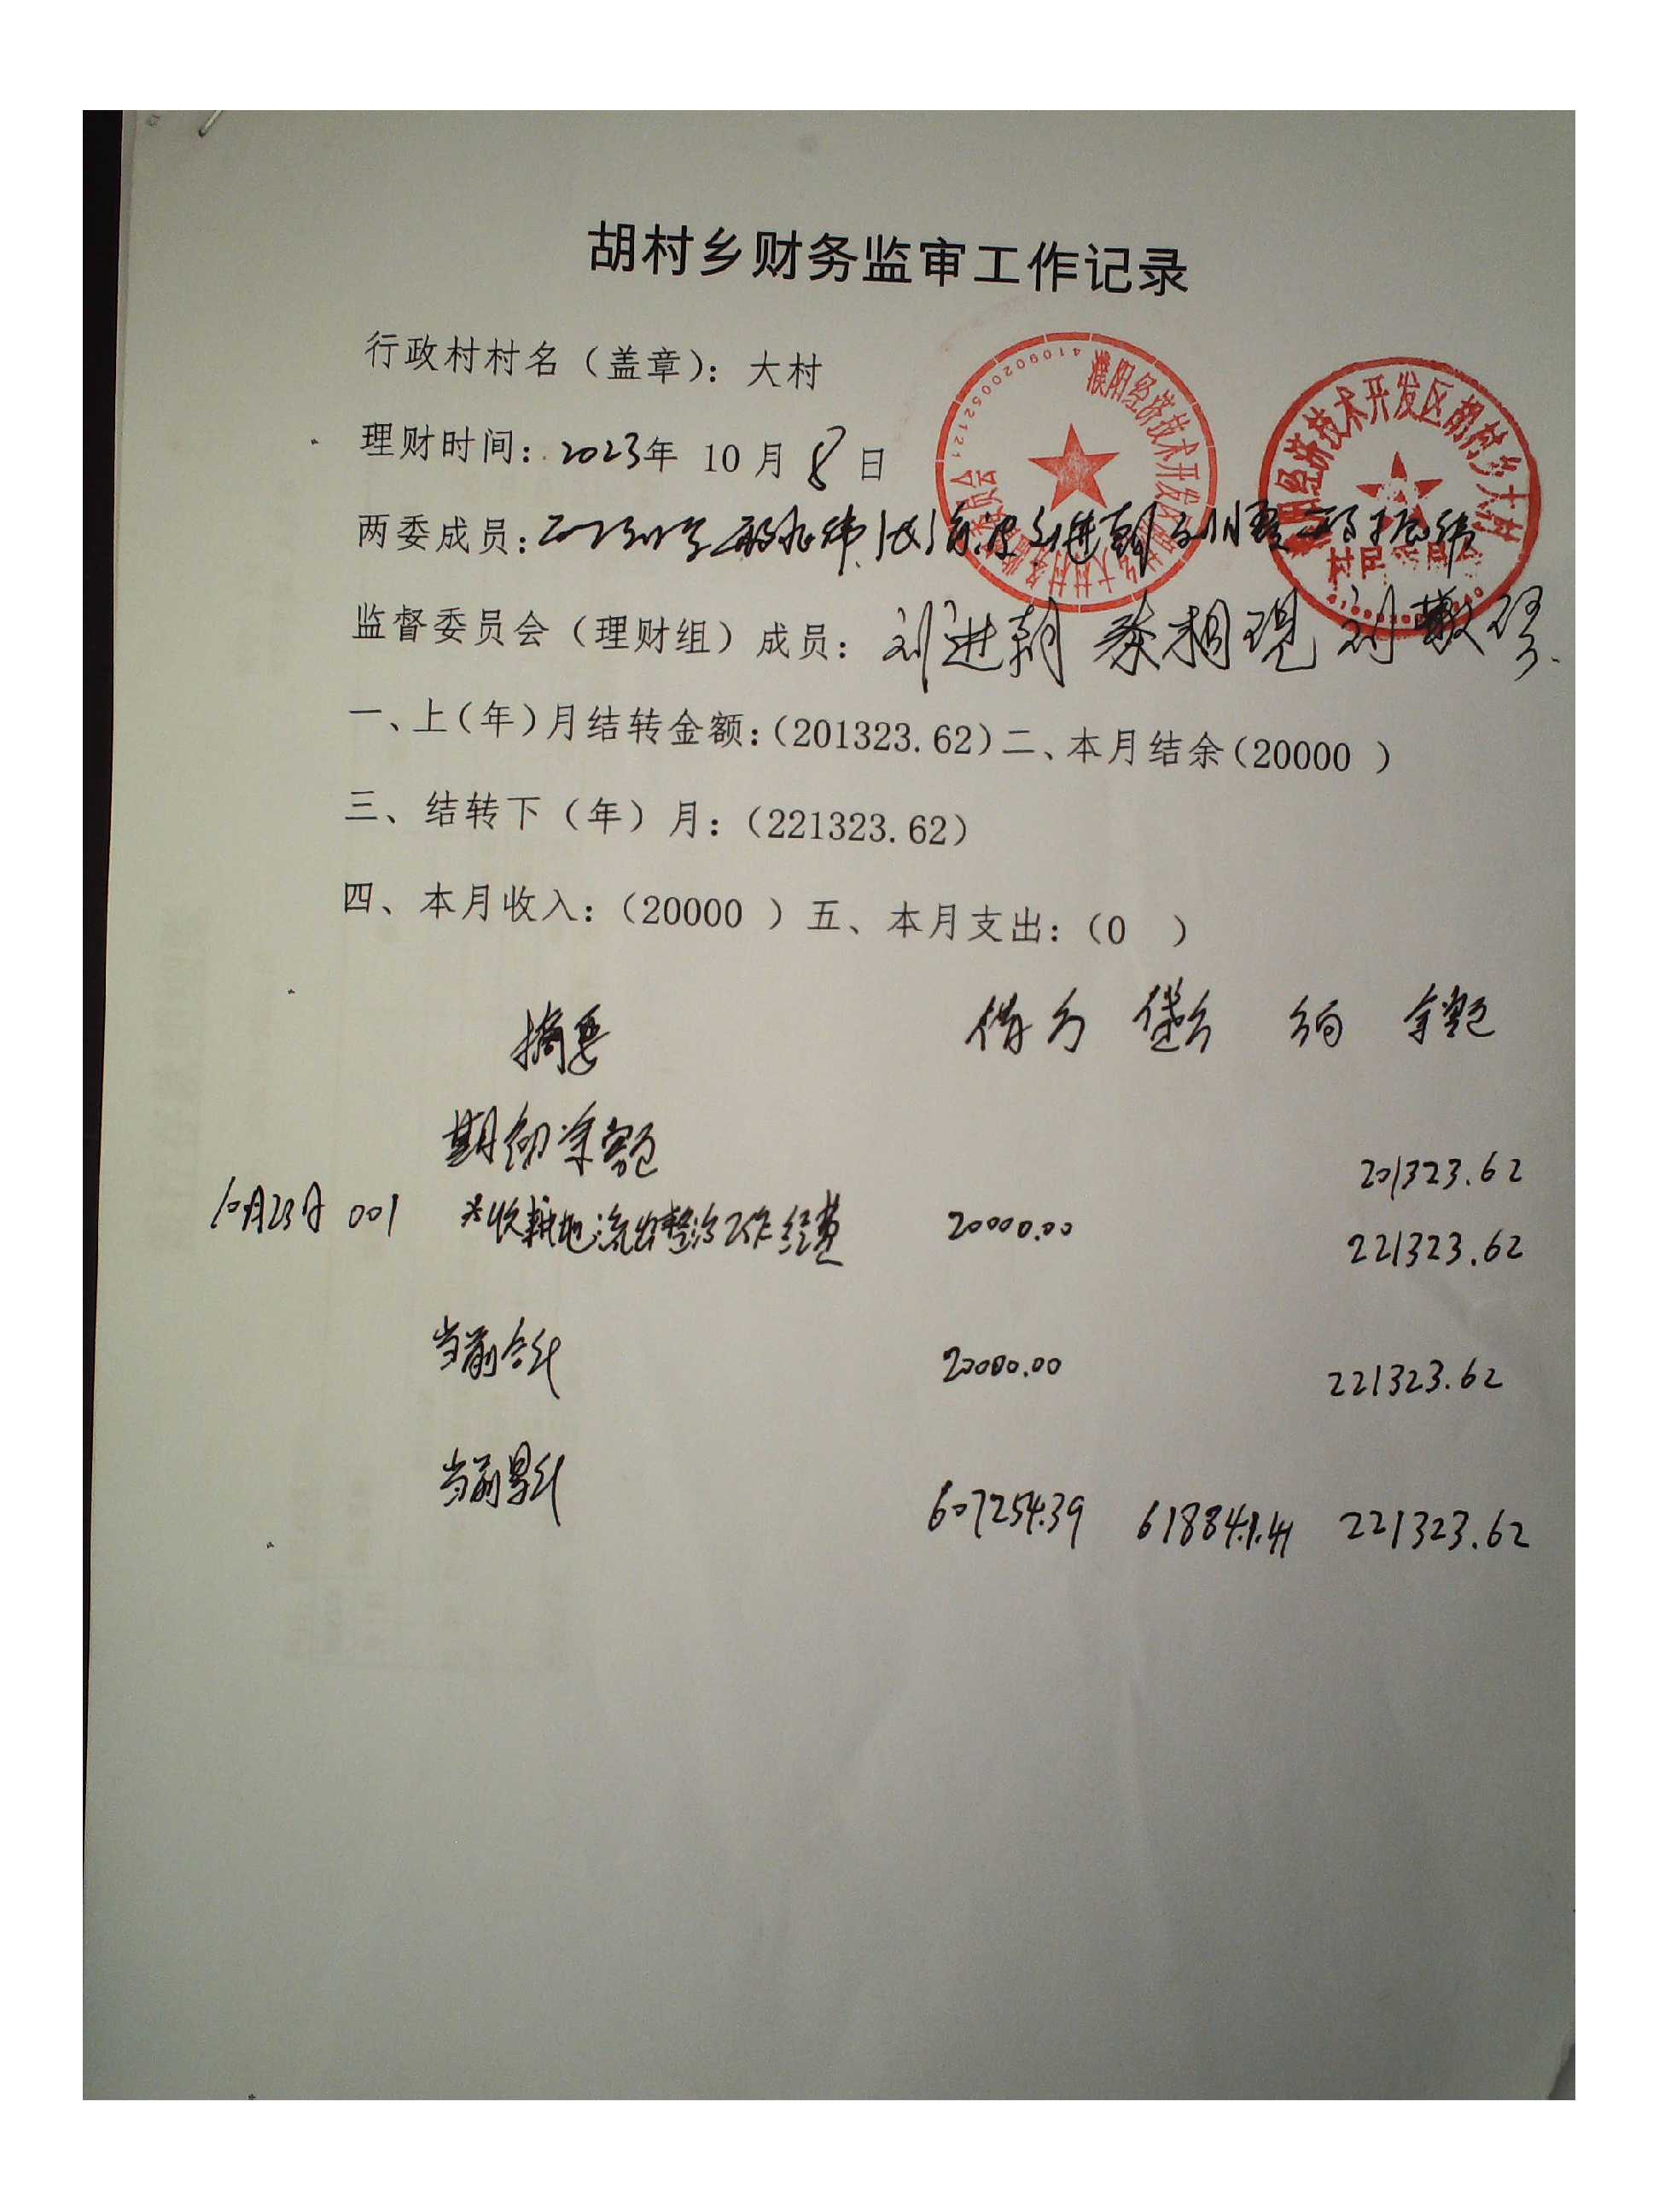 胡村乡财务监审工作记录
行政村村名（盖章）：大村
理财时间：2023年 10 月 8 日
两委成员：
监督委员会（理财组）成员：刘进朝 刘敬
一、上（年）月结转金额：（201323.62）二、本月结余（20000 ）
三、结转下（年）月：（221323.62）
四、本月收入：（20000 ）五、本月支出：（0 ）
摘要 借方 贷方 方向 余额
期初余额 201323.62
10月23日 001 收耕地流出整治工作经费 20000.00 221323.62
当前合计 20000.00 221323.62
当前累计 607254.39 618841.41 221323.62
濮阳经济技术开发区胡村乡大村村务监督委员会
4109020052121
濮阳经济技术开发区胡村乡大村
村民委员会